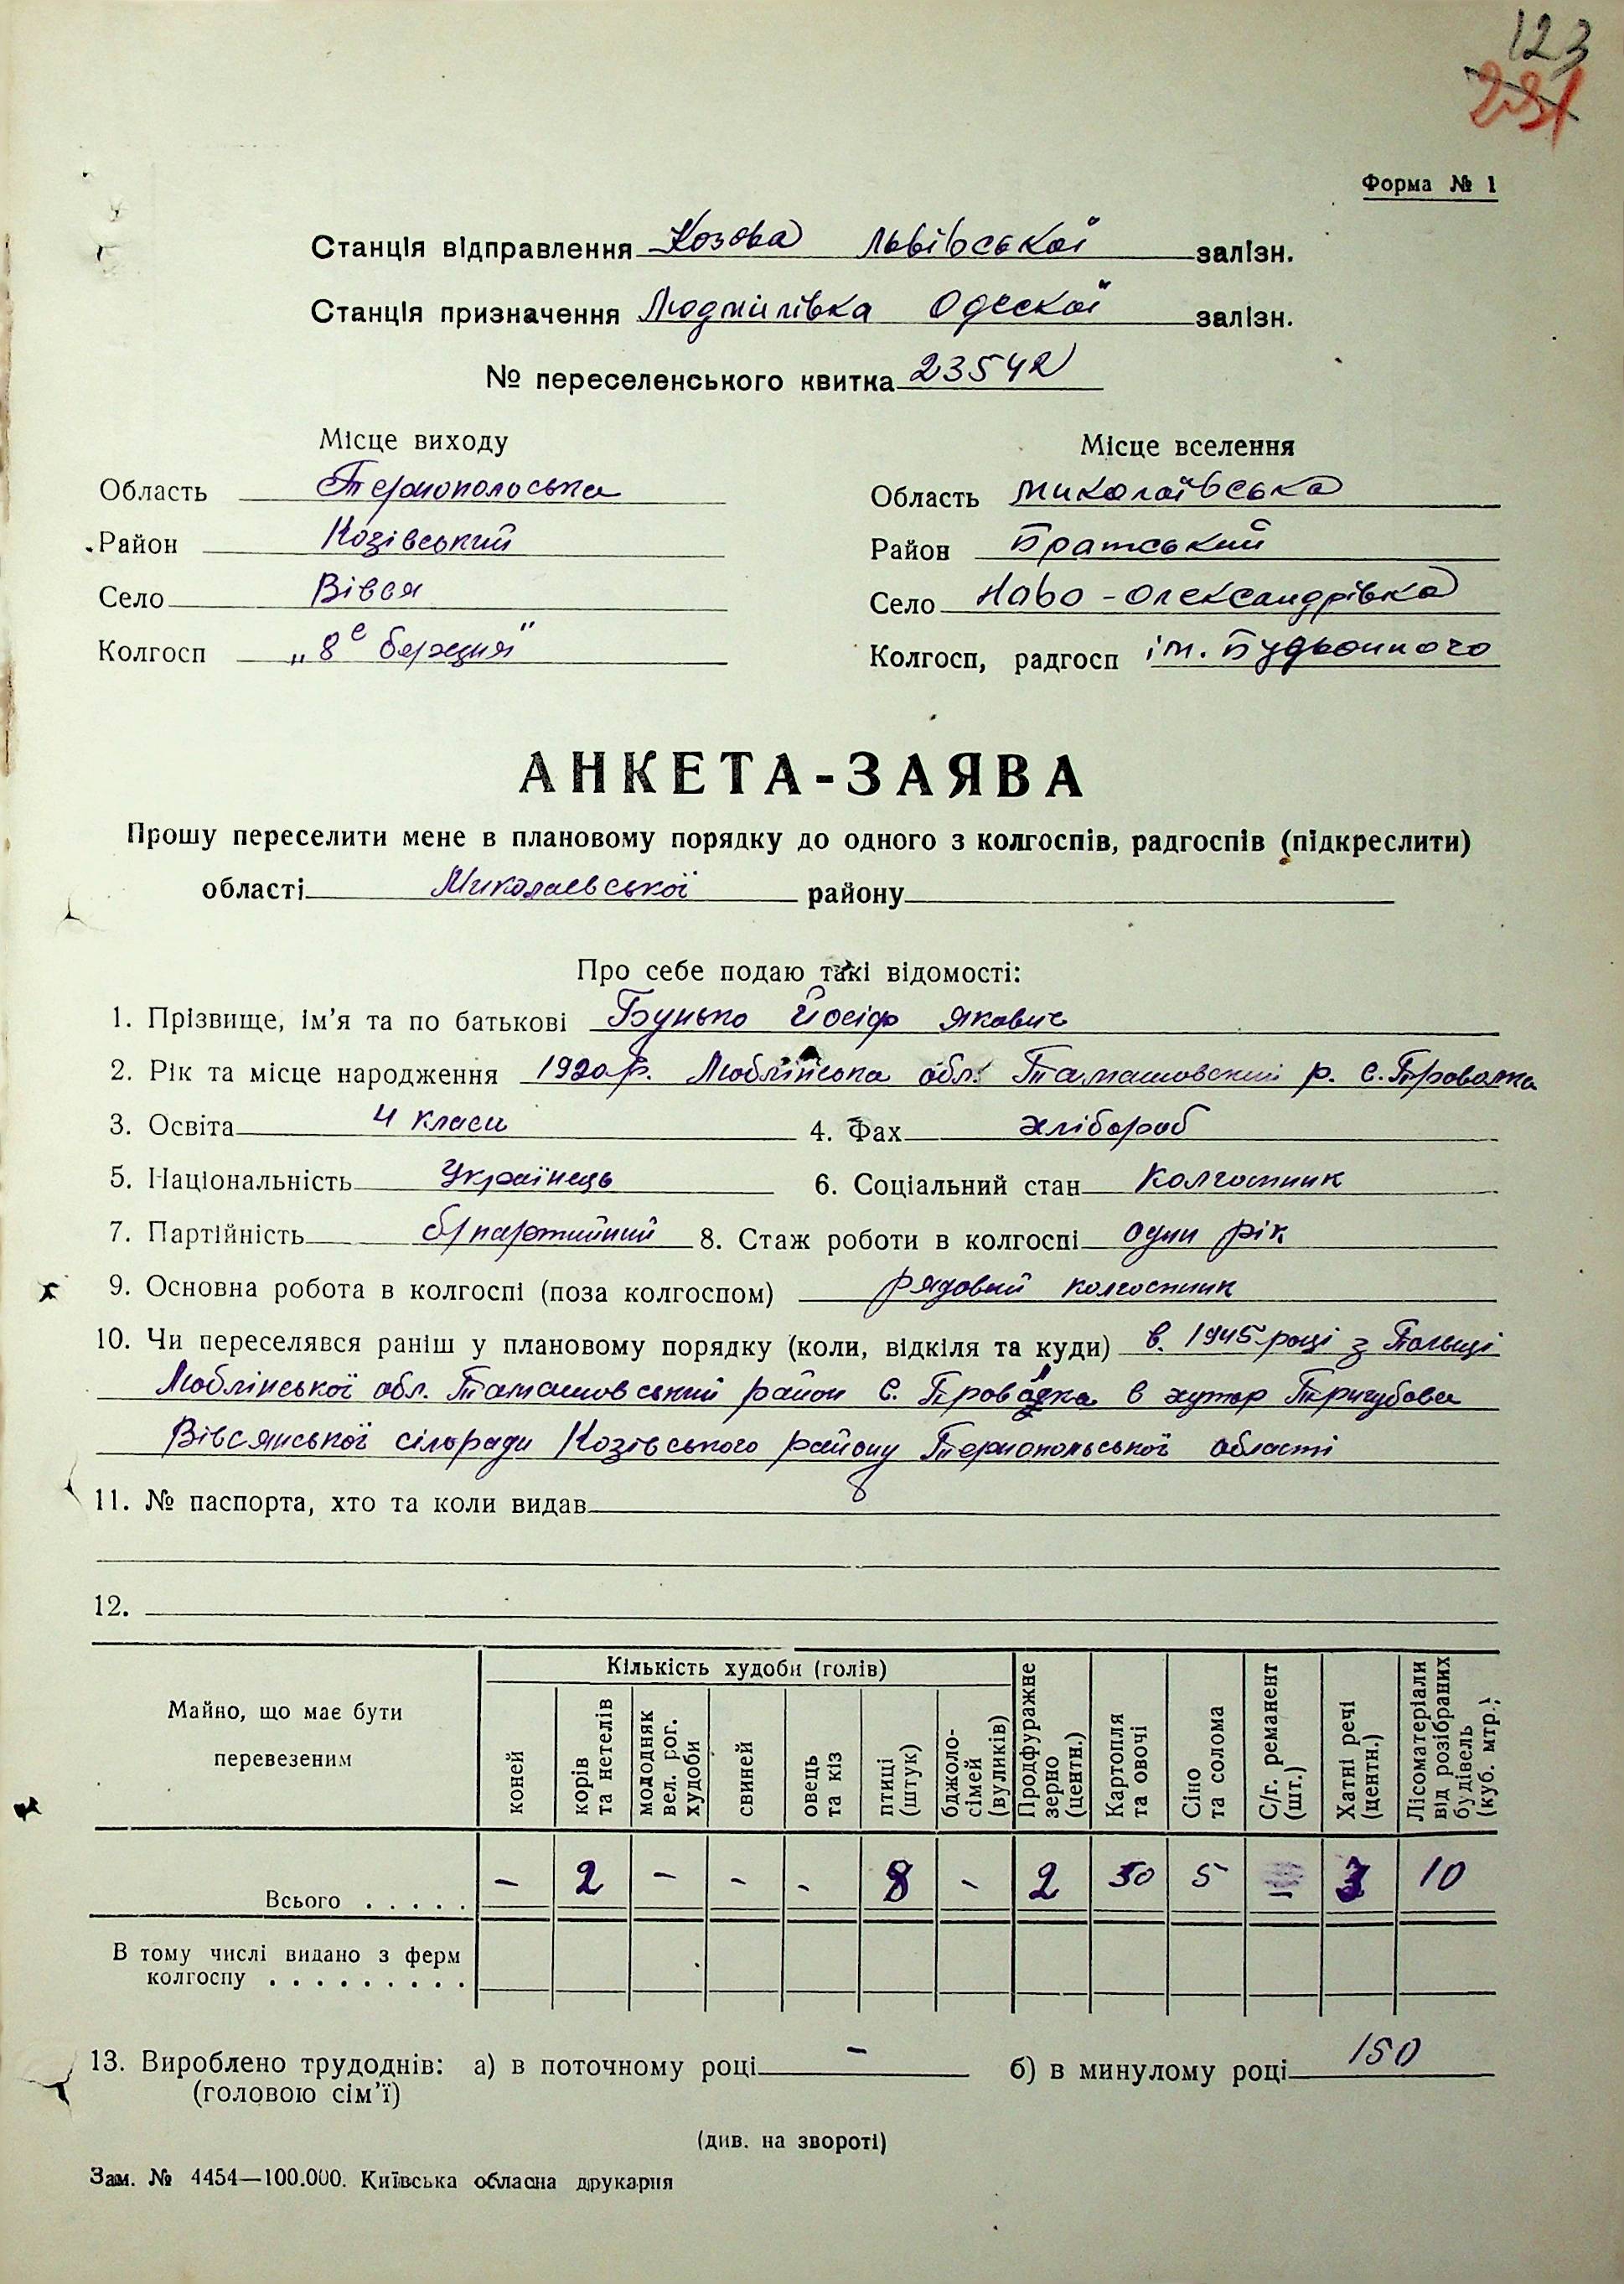 123
231
Форма № 1
Станція відправлення Козова Львівської залізн.
Станція призначення Людмилівка Одескої залізн.
№ переселенського квитка 23542
Місце виходу Місце вселення
Область Тернопольська Область Миколаївська
Район Козівський Район Братський
Село Вівся Село Ново-Олександрівка
Колгосп „8е березня" Колгосп, радгосп ім. Будьонного
АНКЕТА-ЗАЯВА
Прошу переселити мене в плановому порядку до одного з колгоспів, радгоспів (підкреслити)
області Миколаєвської району
Про себе подаю такі відомості:
1. Прізвище, ім'я та по батькові Бунько Йосіф Якович
2. Рік та місце народження 1920 р. Люблінська обл. Тамашовский р. с.
3. Освіта 4 класи 4. Фах хлібороб
5. Національність Українець 6. Соціальний стан колгоспник
7. Партійність б/партийний 8. Стаж роботи в колгоспі один рік
9. Основна робота в колгоспі (поза колгоспом) рядовий колгоспник
10. Чи переселявся раніш у плановому порядку (коли, відкіля та куди) в 1945 році з Польщі
Люблінської обл. Тамашовський район с. в хутор
Вівсянської сільради Козівського району Тернопольської області
11. № паспорта, хто та коли видав
12.
Майно, що має бути перевезеним Кількість худоби (голів)
коней корів та нетелів молодняк вел. рог. худоби свиней овець та кіз птиці (штук) бджоло-сімей (вуликів) Продфуражне зерно (центн.) Картопля та овочі Сіно та солома С/г. реманент (шт.) Хатні речі (центн.) Лісоматеріали від розібраних будівель (куб. мтр.)
Всього . . . . . – 2 – – – 8 – 2 50 5 – 3 10
В тому числі видано з ферм
колгоспу . . . . . . . . .
13. Вироблено трудоднів: а) в поточному році – б) в минулому році 150
(головою сім'ї)
(див. на звороті)
Зам. № 4454—100.000. Київська обласна друкарня